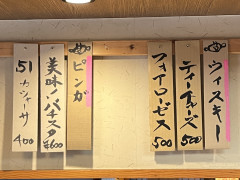 ウイスキー
ティーチャーズ 500
フォアローゼス 500
ピンガ
美味ンバチスタ ¥600
51 カシャーサ 400